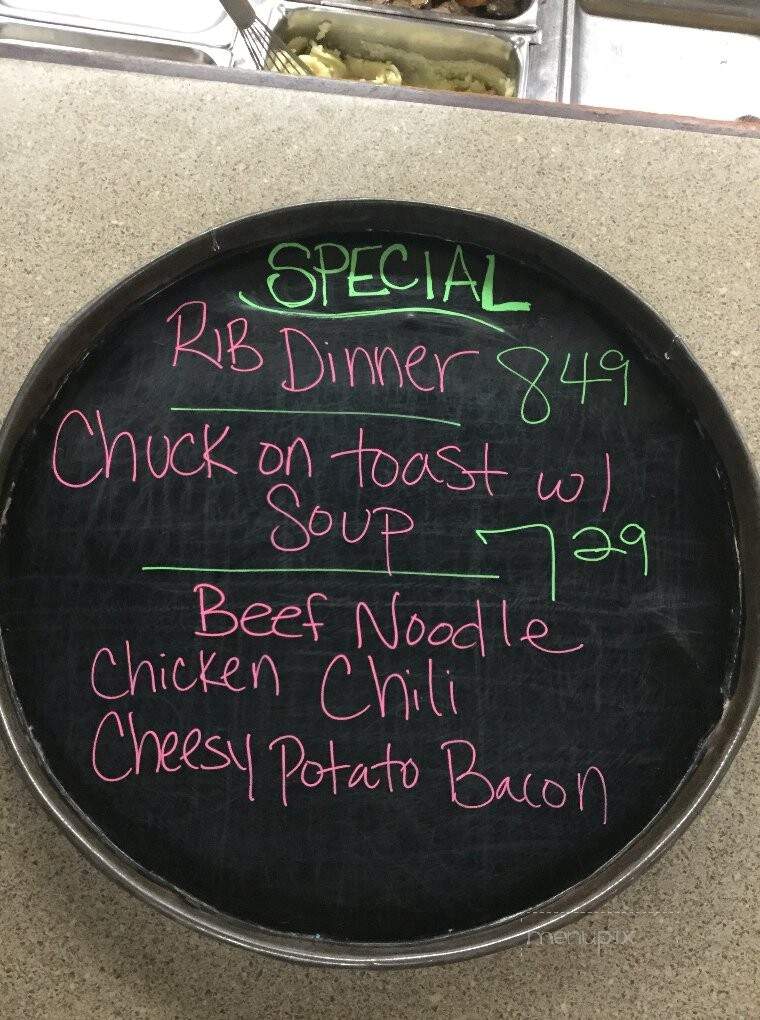 SPECIAL
RIB Dinner 849
Chuck on toast w/
Soup 729
Beef Noodle
Chicken Chili
Cheesy Potato Bacon
menupix